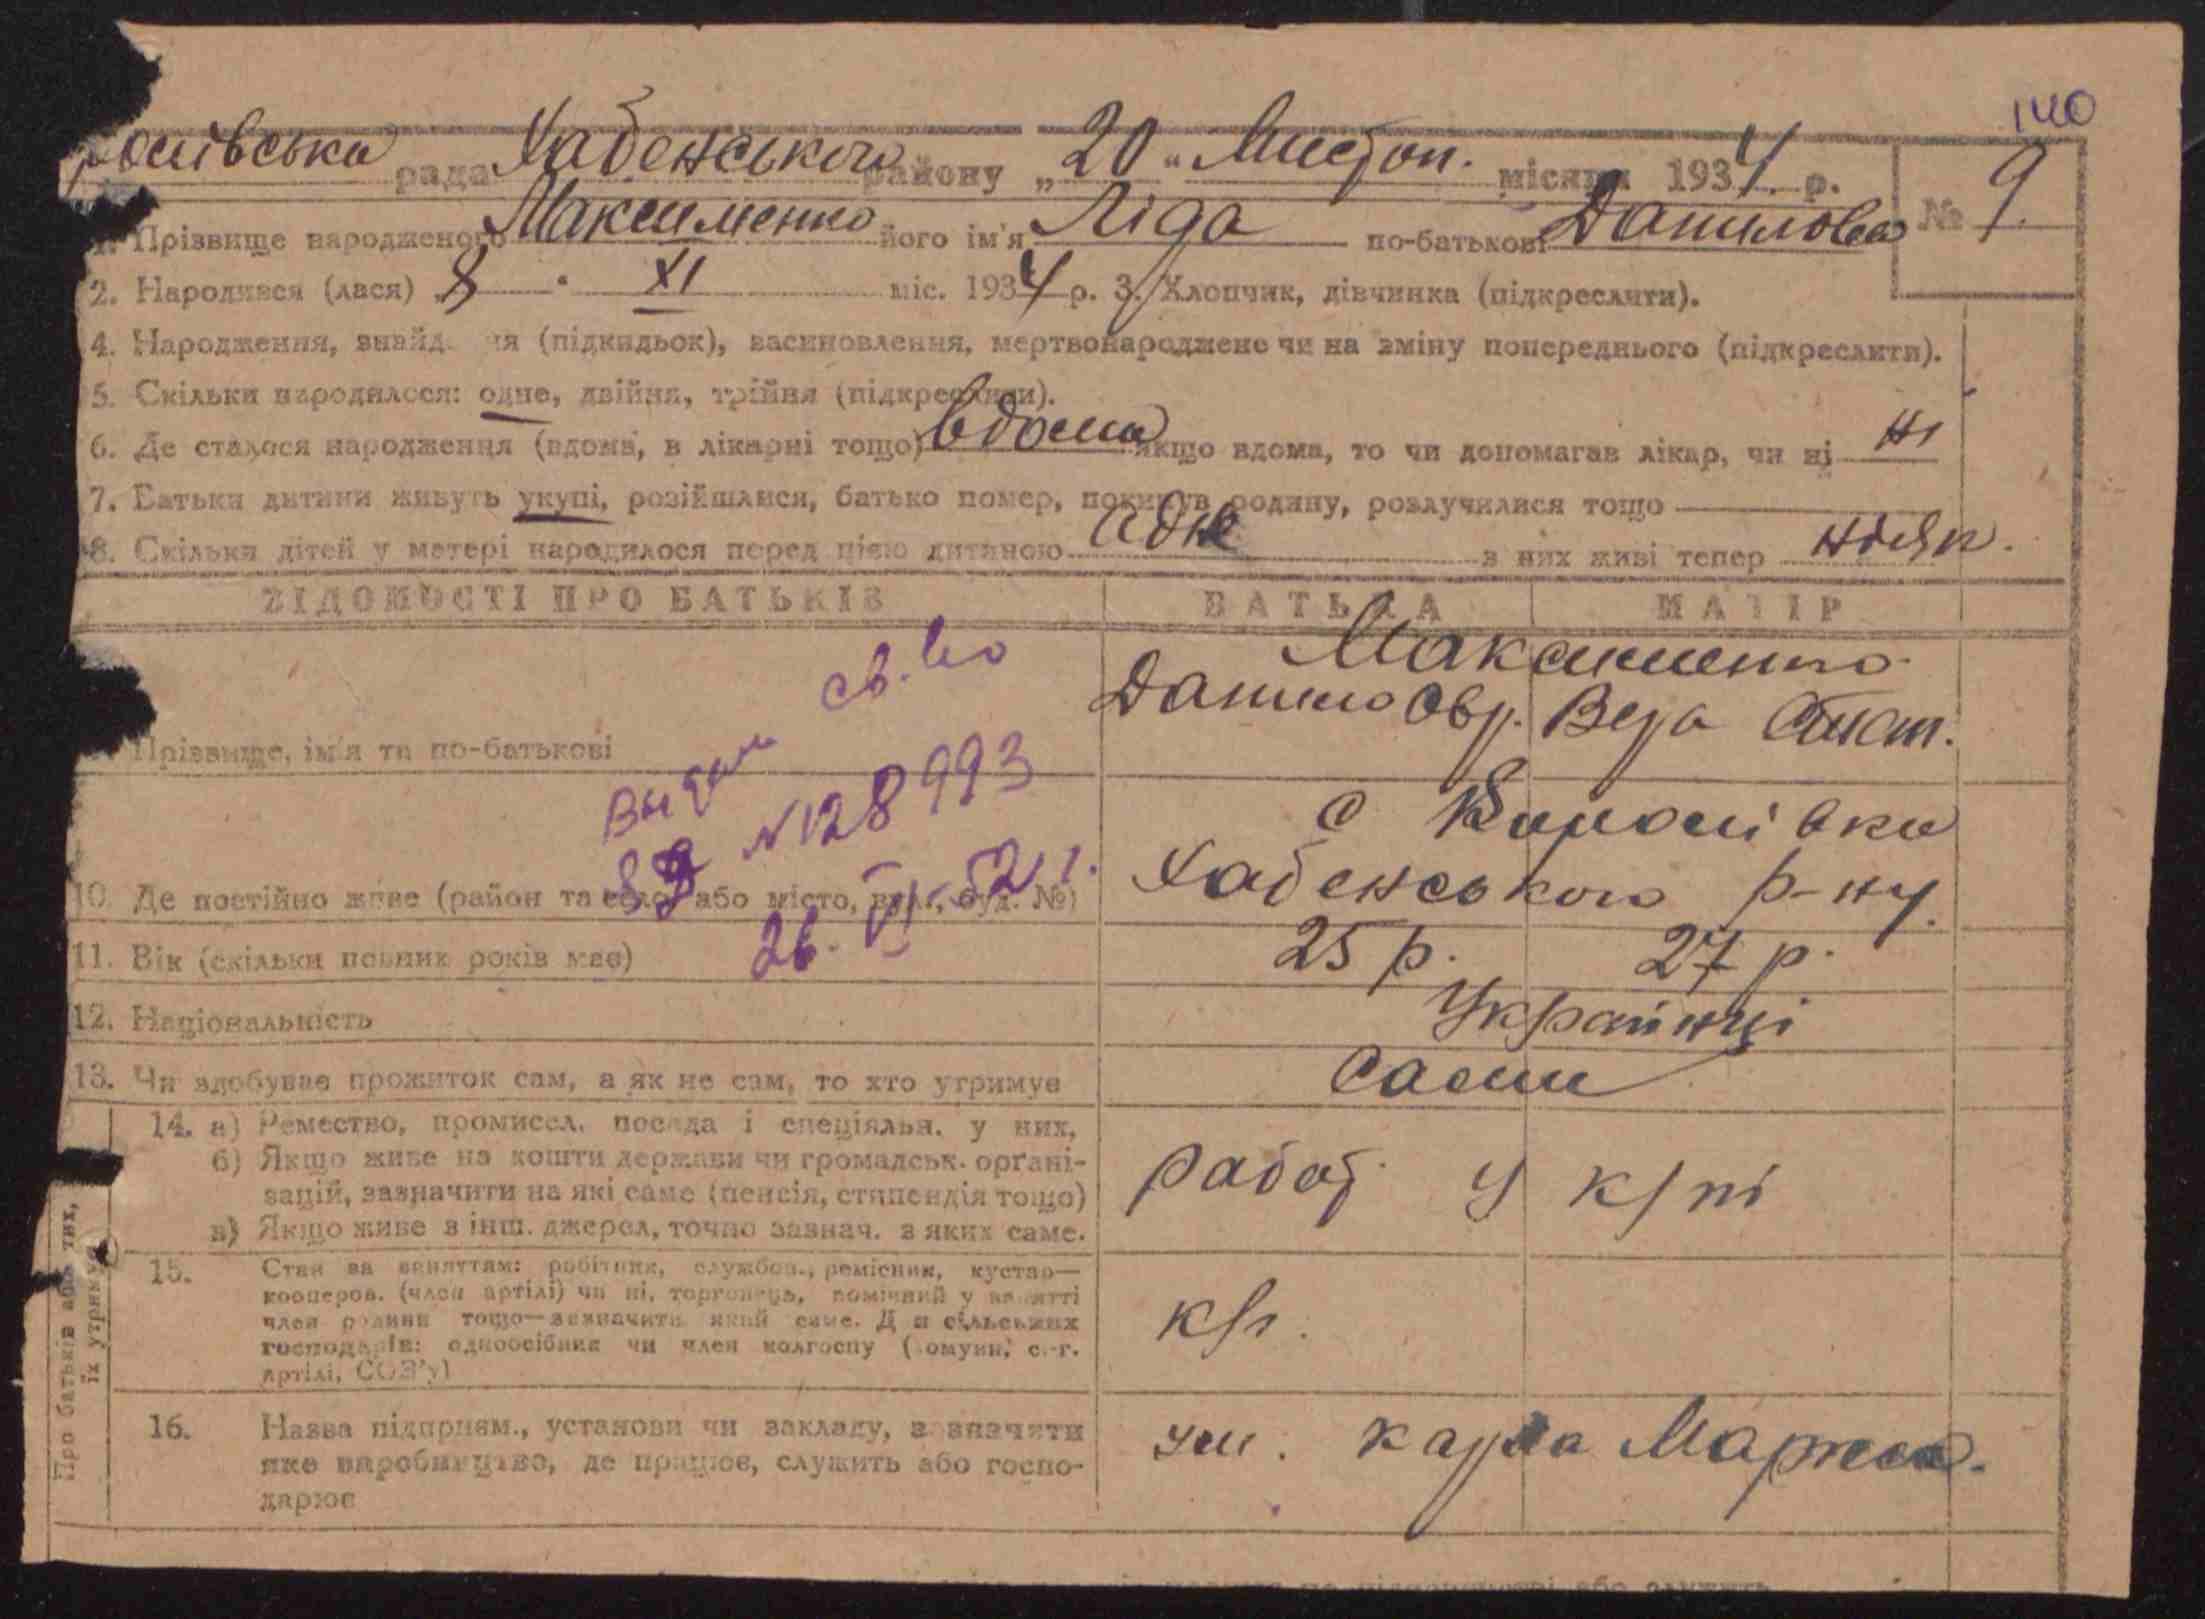 140
рада Хабенського району „20“ Листоп. місяця 1934 р. № 9
1. Прізвище народженого Максименко його ім'я Ліда по-батькові Данилова
2. Народився (лася) 8 " XI міс. 1934 р. 3. Хлопчик, дівчинка (підкреслити).
4. Народження, знайдення (підкидьок), васиновлення, мертвонароджене чи на зміну попереднього (підкреслити).
5. Скільки народилося: одне, двійня, трійня (підкреслити).
6. Де сталося народження (вдома, в лікарні тощо) вдома якщо вдома, то чи допомагав лікар, чи ні ні
7. Батьки дитини живуть укупі, розійшлися, батько помер, покинув родину, розлучилися тощо
8. Скільки дітей у матері народилося перед цією дитиною одне з них живі тепер
ВІДОМОСТІ ПРО БАТЬКІВ БАТЬКА МАТІР
св. во
Максименко
Данило Овр. Вера
Прізвище, ім'я та по-батькові
Выдан
№ 128993
с
Хабенського р-ну.
10. Де постійно живе (район та село, або місто, вул., буд. №)
26. VI-52 г.
11. Вік (скільки повних років має) 25 р. 27 р.
12. Національність Українці
13. Чи здобуває прожиток сам, а як не сам, то хто утримує сами
Про батьків або тих, їх утримує
14. а) Ремество, промисел, посада і спеціяльн. у них,
б) Якщо живе на кошти держави чи громадськ. органі-
зацій, зазначити на які саме (пенсія, стипендія тощо)
в) Якщо живе з інш. джерел, точно зазнач. з яких саме.
работ у к/пі
15. Стан за заняттям: робітник, службов., ремісник, кустар—
кооперов. (член артілі) чи ні, торговець, помічний у занятті
член родини тощо—зазначити який саме. Для сільських
господарів: одноосібник чи член колгоспу (комуни, с.-г.
артілі, СОЗ'у)
к/г.
16. Назва підприєм., установи чи закладу, зазначити
яке виробництво, де працює, служить або госпо-
дарює
ім. карла Маркса.